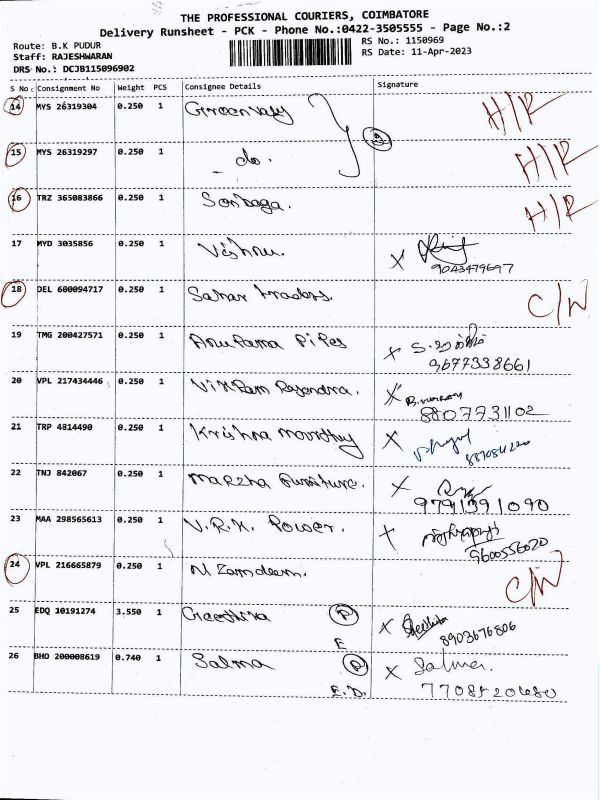 THE PROFESSIONAL COURIERS, COIMBATORE
Delivery Runsheet - PCK - Phone No.:0422-3505555 - Page No.:2
Route: B.K PUDUR
RS No.: 1150969
Staff: RAJESHWARAN
RS Date: 11-Apr-2023
DRS No.: DCJB115096902
S No Consignment No Weight PCS Consignee Details Signature
14 MYS 26319304 0.250 1 H/R
15 MYS 26319297 0.250 1 - do. H/R
16 TRZ 365083866 0.250 1 H/R
17 MYD 3035856 0.250 1 Vishnu. X
9043479697
18 DEL 600094717 0.250 1 Sahar traders. C/N
19 TMG 200427571 0.250 1 Anupama Pipes X
9677338661
20 VPL 217434446 0.250 1 Vikram Rajendra. X
8807731102
21 TRP 4814490 0.250 1 Krishna moorthy X
22 TNJ 842067 0.250 1 Furniture. X
9791391090
23 MAA 298565613 0.250 1 V.R.K. Power. X
9600556020
24 VPL 216665879 0.250 1 C/N
25 EDQ 10191274 3.550 1 Geethika P X
E 8903676806
26 BHO 200008619 0.740 1 Salma P X Salma.
E.D.